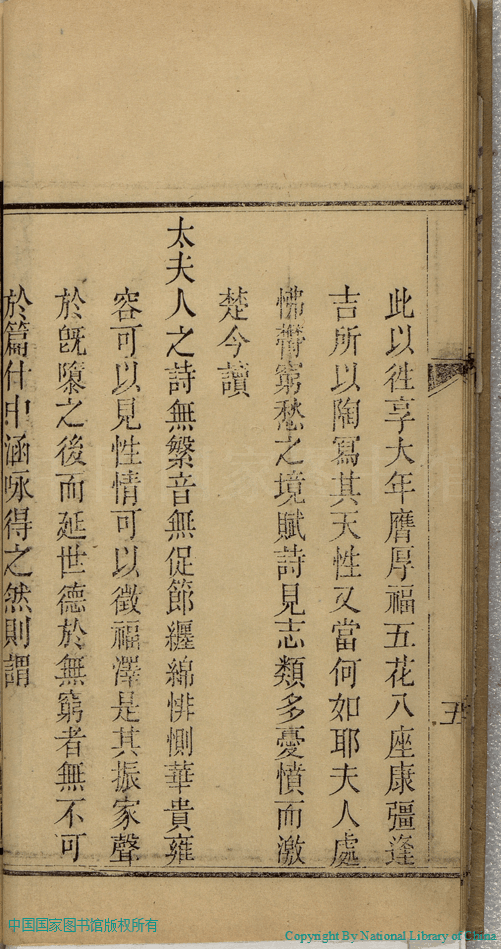 此以徃享大年膺厚福五花八座康彊逢
吉所以陶寫其天性又當何如耶夫人處
怫鬱窮愁之境賦詩見志類多憂憤而激
楚今讀
太夫人之詩無繁音無促節纏綿悱惻華貴雍
容可以見性情可以徵福澤是其振家聲
於旣隳之後而延世德於無窮者無不可
於篇什中涵咏得之然則謂
五
中国国家图书馆版权所有
Copyright By National Library of China